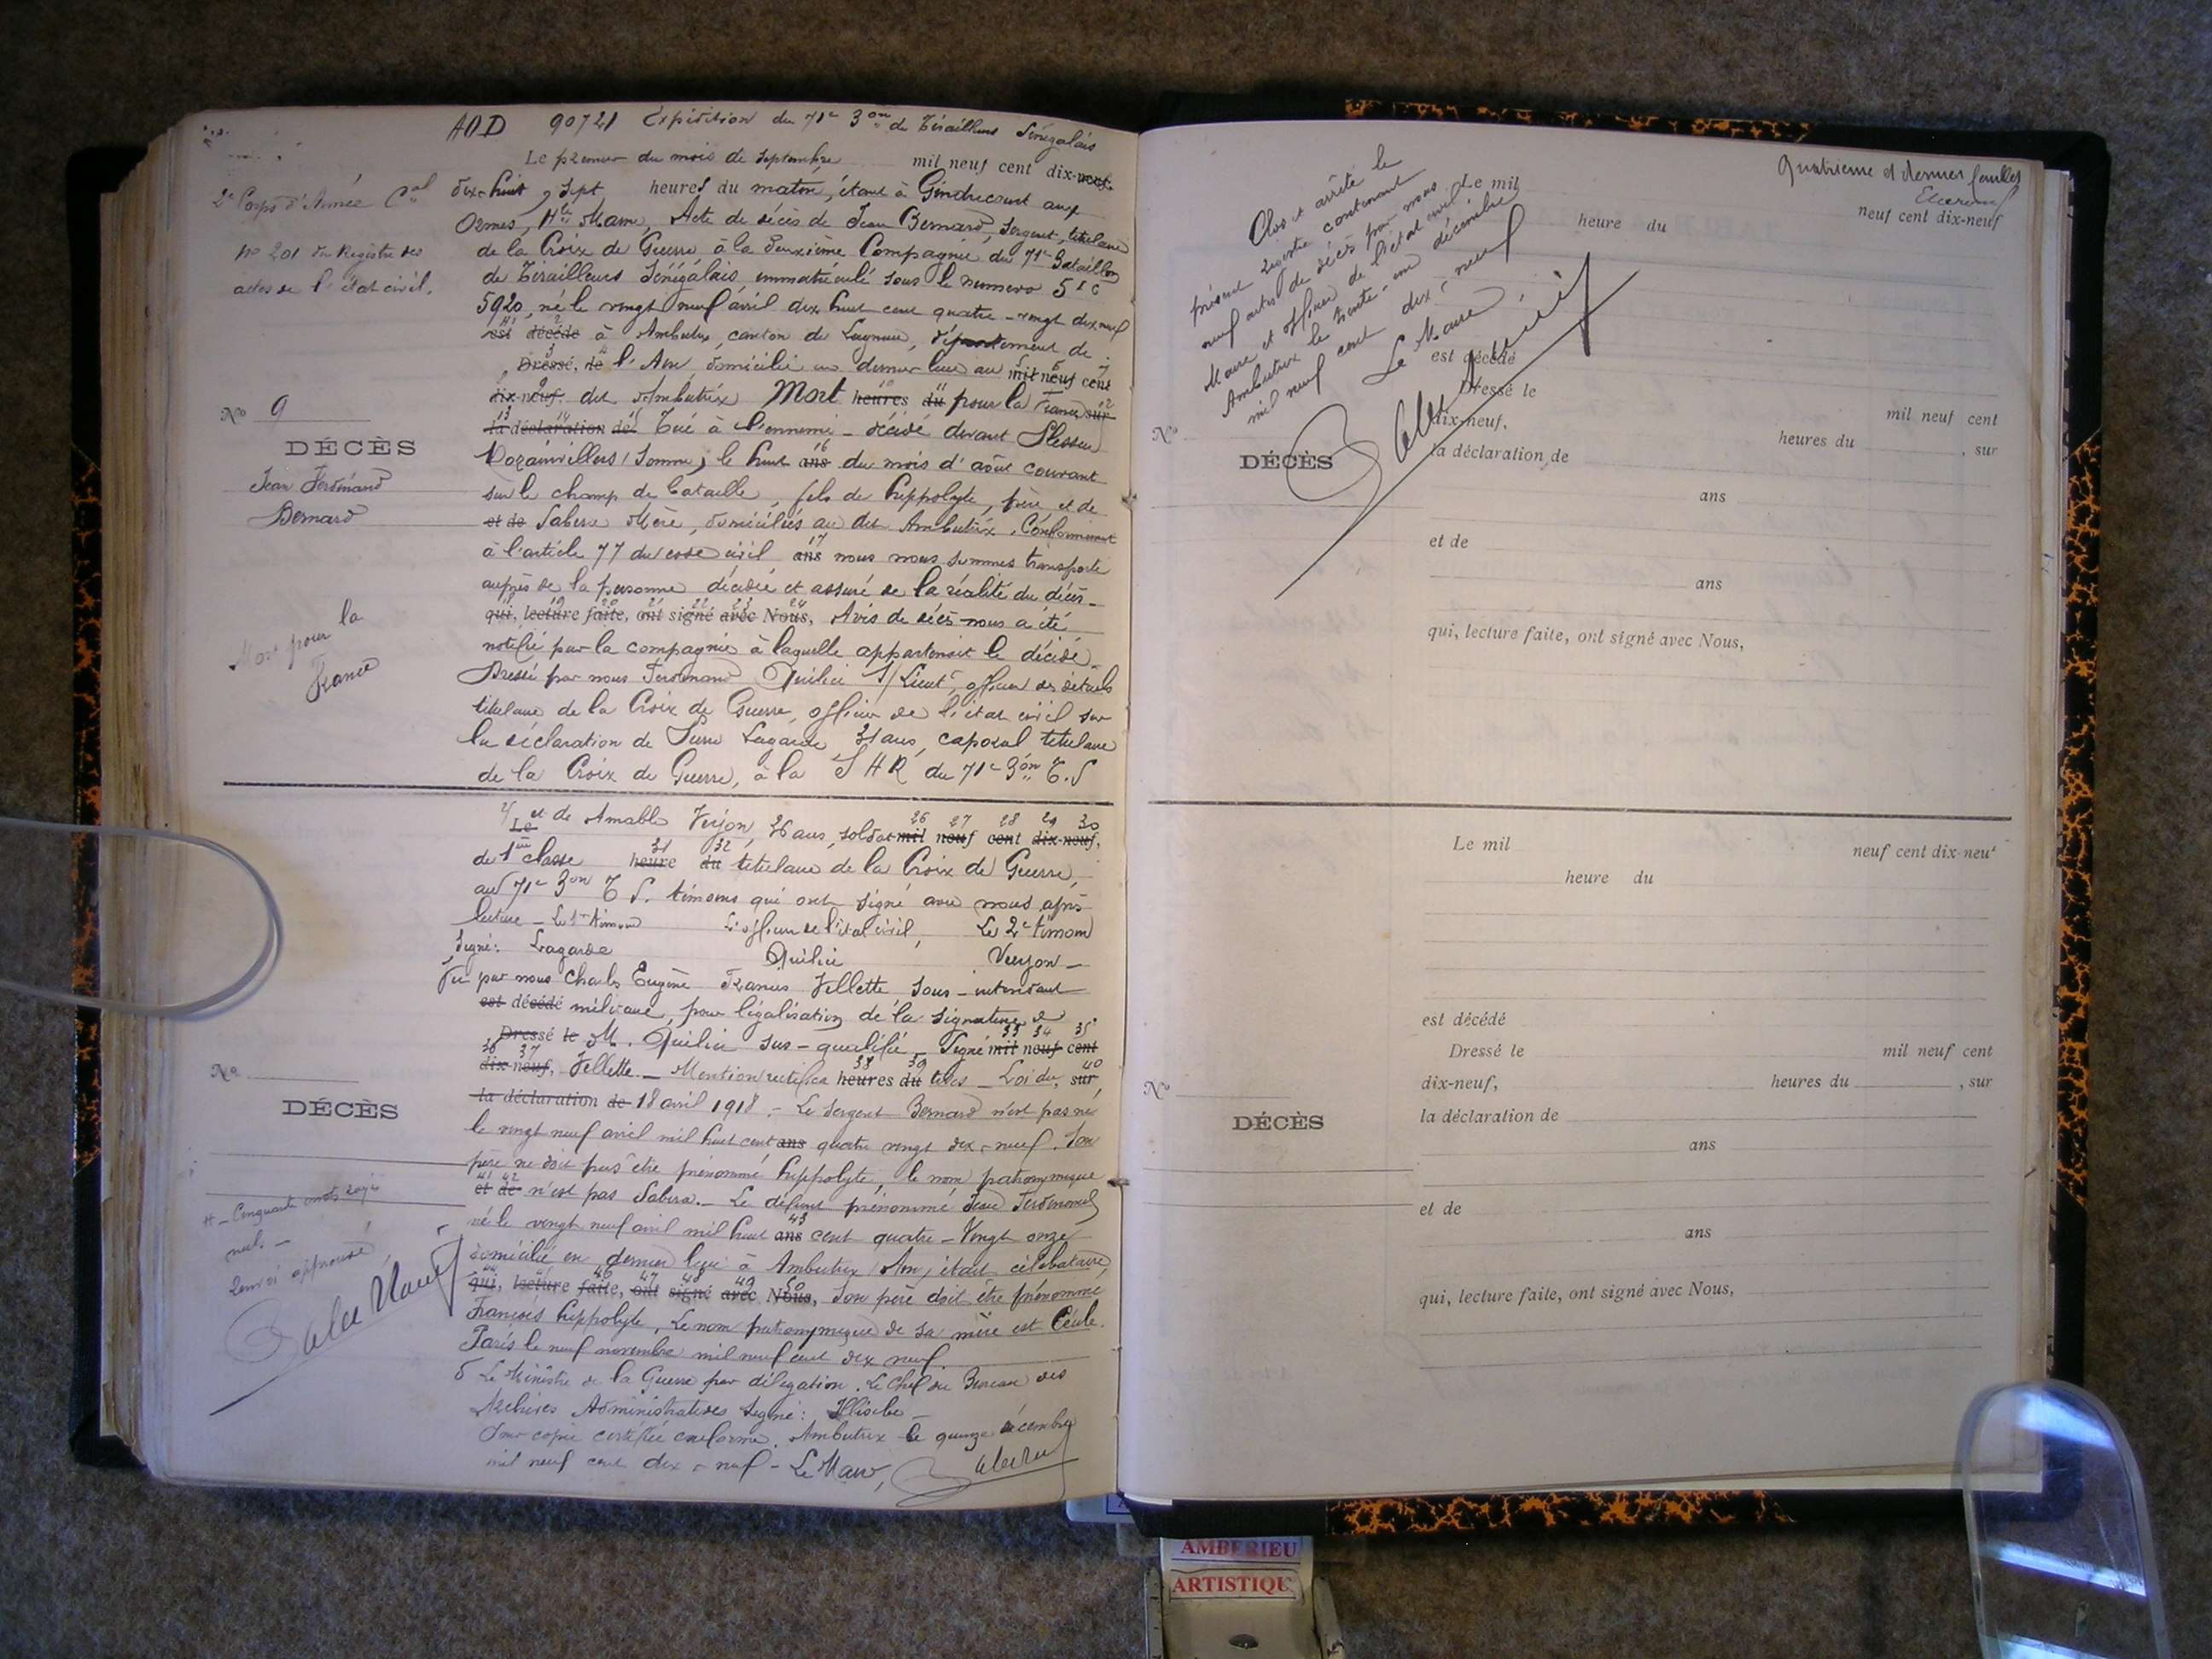 AOD 90721 Expédition du 71e Bon de Tirailleurs Sénégalais
Le premier du mois de septembre mil neuf cent dix-neuf
dix-huit, sept heures du matin, étant à Gindrecourt aux
Ormes, Hte Marne, Acte de décès de Jean Bernard, Sergent, titulaire
de la Croix de Guerre, à la deuxième Compagnie du 71e Bataillon
de Tirailleurs Sénégalais, immatriculé sous le numero
5920, né le vingt neuf avril dix huit cent quatre-vingt dix neuf
est décédé à Ambutrix, canton de Lagnieu, département de
Dressé, de l'Ain, domicilié en dernier lieu au mil neuf cent
dix-neuf. dit Ambutrix Mort heures du pour la France sur
la déclaration de Tué à l'ennemi - décédé devant Plessier
Rozainvillers (Somme) le huit ans du mois d'août courant
sur le champ de bataille, fils de hippolyte, père, et de
et de Sabera Mère, domiciliés au dit Ambutrix. Conformément
à l'article 77 du code civil ans nous nous sommes transporté
auprès de la personne décédée et assuré de la réalité du décès -
qui, lecture faite, ont signé avec Nous, Avis de décès nous a été
notifié par la compagnie à laquelle appartenait le décédé.
Dressé par nous Ferdinand Quilici S/Lieut, officier des détails
titulaire de la Croix de Guerre, officier de l'état civil sur
la déclaration de Pierre Lagarde, 31 ans, caporal titulaire
de la Croix de Guerre, à la S H R du 71e Bon T.S
2e Corps d'Armée Cal
No 201 du Registre des
actes de l'état civil.
No 9
DÉCÈS
Jean Ferdinand
Bernard
Mort pour la
France
2/ Le et de Amable Verjon, 36 ans, soldat mil neuf cent dix-neuf,
de 1ère classe heure du titulaire de la Croix de Guerre,
au 71e Bon T S. témoins qui ont signé avec nous après
lecture - Le 1er témoin L'officier de l'état civil, Le 2e témoin
Signé: Lagarde Quilici Verjon -
Vu par nous Charles Eugène Francis Villette Sous-intendant
est décédé militaire, pour légalisation de la signature de
Dressé le M. Quilici sus-qualifié - Signé mil neuf cent
dix-neuf, Villette. - Mention rectifica heures du tives - Loi du, sur,
la déclaration de 18 avril 1918. - Le sergent Bernard n'est pas né
le vingt neuf avril mil huit cent ans quatre vingt dix-neuf. Son
père ne doit pas être prénommé hippolyte, le nom patronymique
et de n'est pas Sabera. - Le défunt prénommé Jean Ferdinand
né le vingt neuf avril mil huit ans cent quatre-Vingt onze
domicilié en dernier lieu à Ambutrix (Ain) était célibataire,
qui, lecture faite, ont signé avec Nous, Son père doit être prénommé
François hippolyte. Le nom patronymique de sa mère est
Paris le neuf novembre mil neuf cent dix neuf.
Le Ministre de la Guerre par délégation. Le Chef du Bureau des
Archives Administratives Signé:
Pour copie certifiée conforme. Ambutrix le quinze décembre
mil neuf cent dix-neuf - Le Maire,
No
DÉCÈS
Cinquante mots rayés
nul. -
Renvoi approuvé
Quatrième et dernier feuillet
Clos et arrêté le
présent registre contenant
neuf actes de décès par nous
Maire et officier de l'état civil
Ambutrix le trente-un décembre
mil neuf cent dix-neuf
Le Maire.
Le mil
neuf cent dix-neuf
heure du
est décédé
Dressé le
mil neuf cent
dix-neuf,
heures du , sur
la déclaration de
No
DÉCÈS
ans
et de
ans
qui, lecture faite, ont signé avec Nous,
Le mil
neuf cent dix-neu
heure du
est décédé
Dressé le mil neuf cent
dix-neuf, heures du , sur
No
la déclaration de
DÉCÈS
ans
et de
ans
qui, lecture faite, ont signé avec Nous,
AMBERIEU
ARTISTIQU